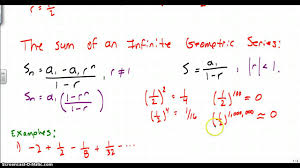 The Sum of an Infinite Geometric Series:
Sₙ = (a₁ - a₁rⁿ)/(1 - r), r ≠ 1
S = a₁/(1 - r), |r| < 1.
Sₙ = a₁((1 - rⁿ)/(1 - r))
(1/2)² = 1/4
(1/2)¹⁰⁰ ≈ 0
(1/2)⁴ = 1/16
(1/2)¹,⁰⁰⁰,⁰⁰⁰ ≈ 0
Examples:
1) -2 + 1/2 - 1/8 + 1/32 - ...
Screencast-O-Matic.com